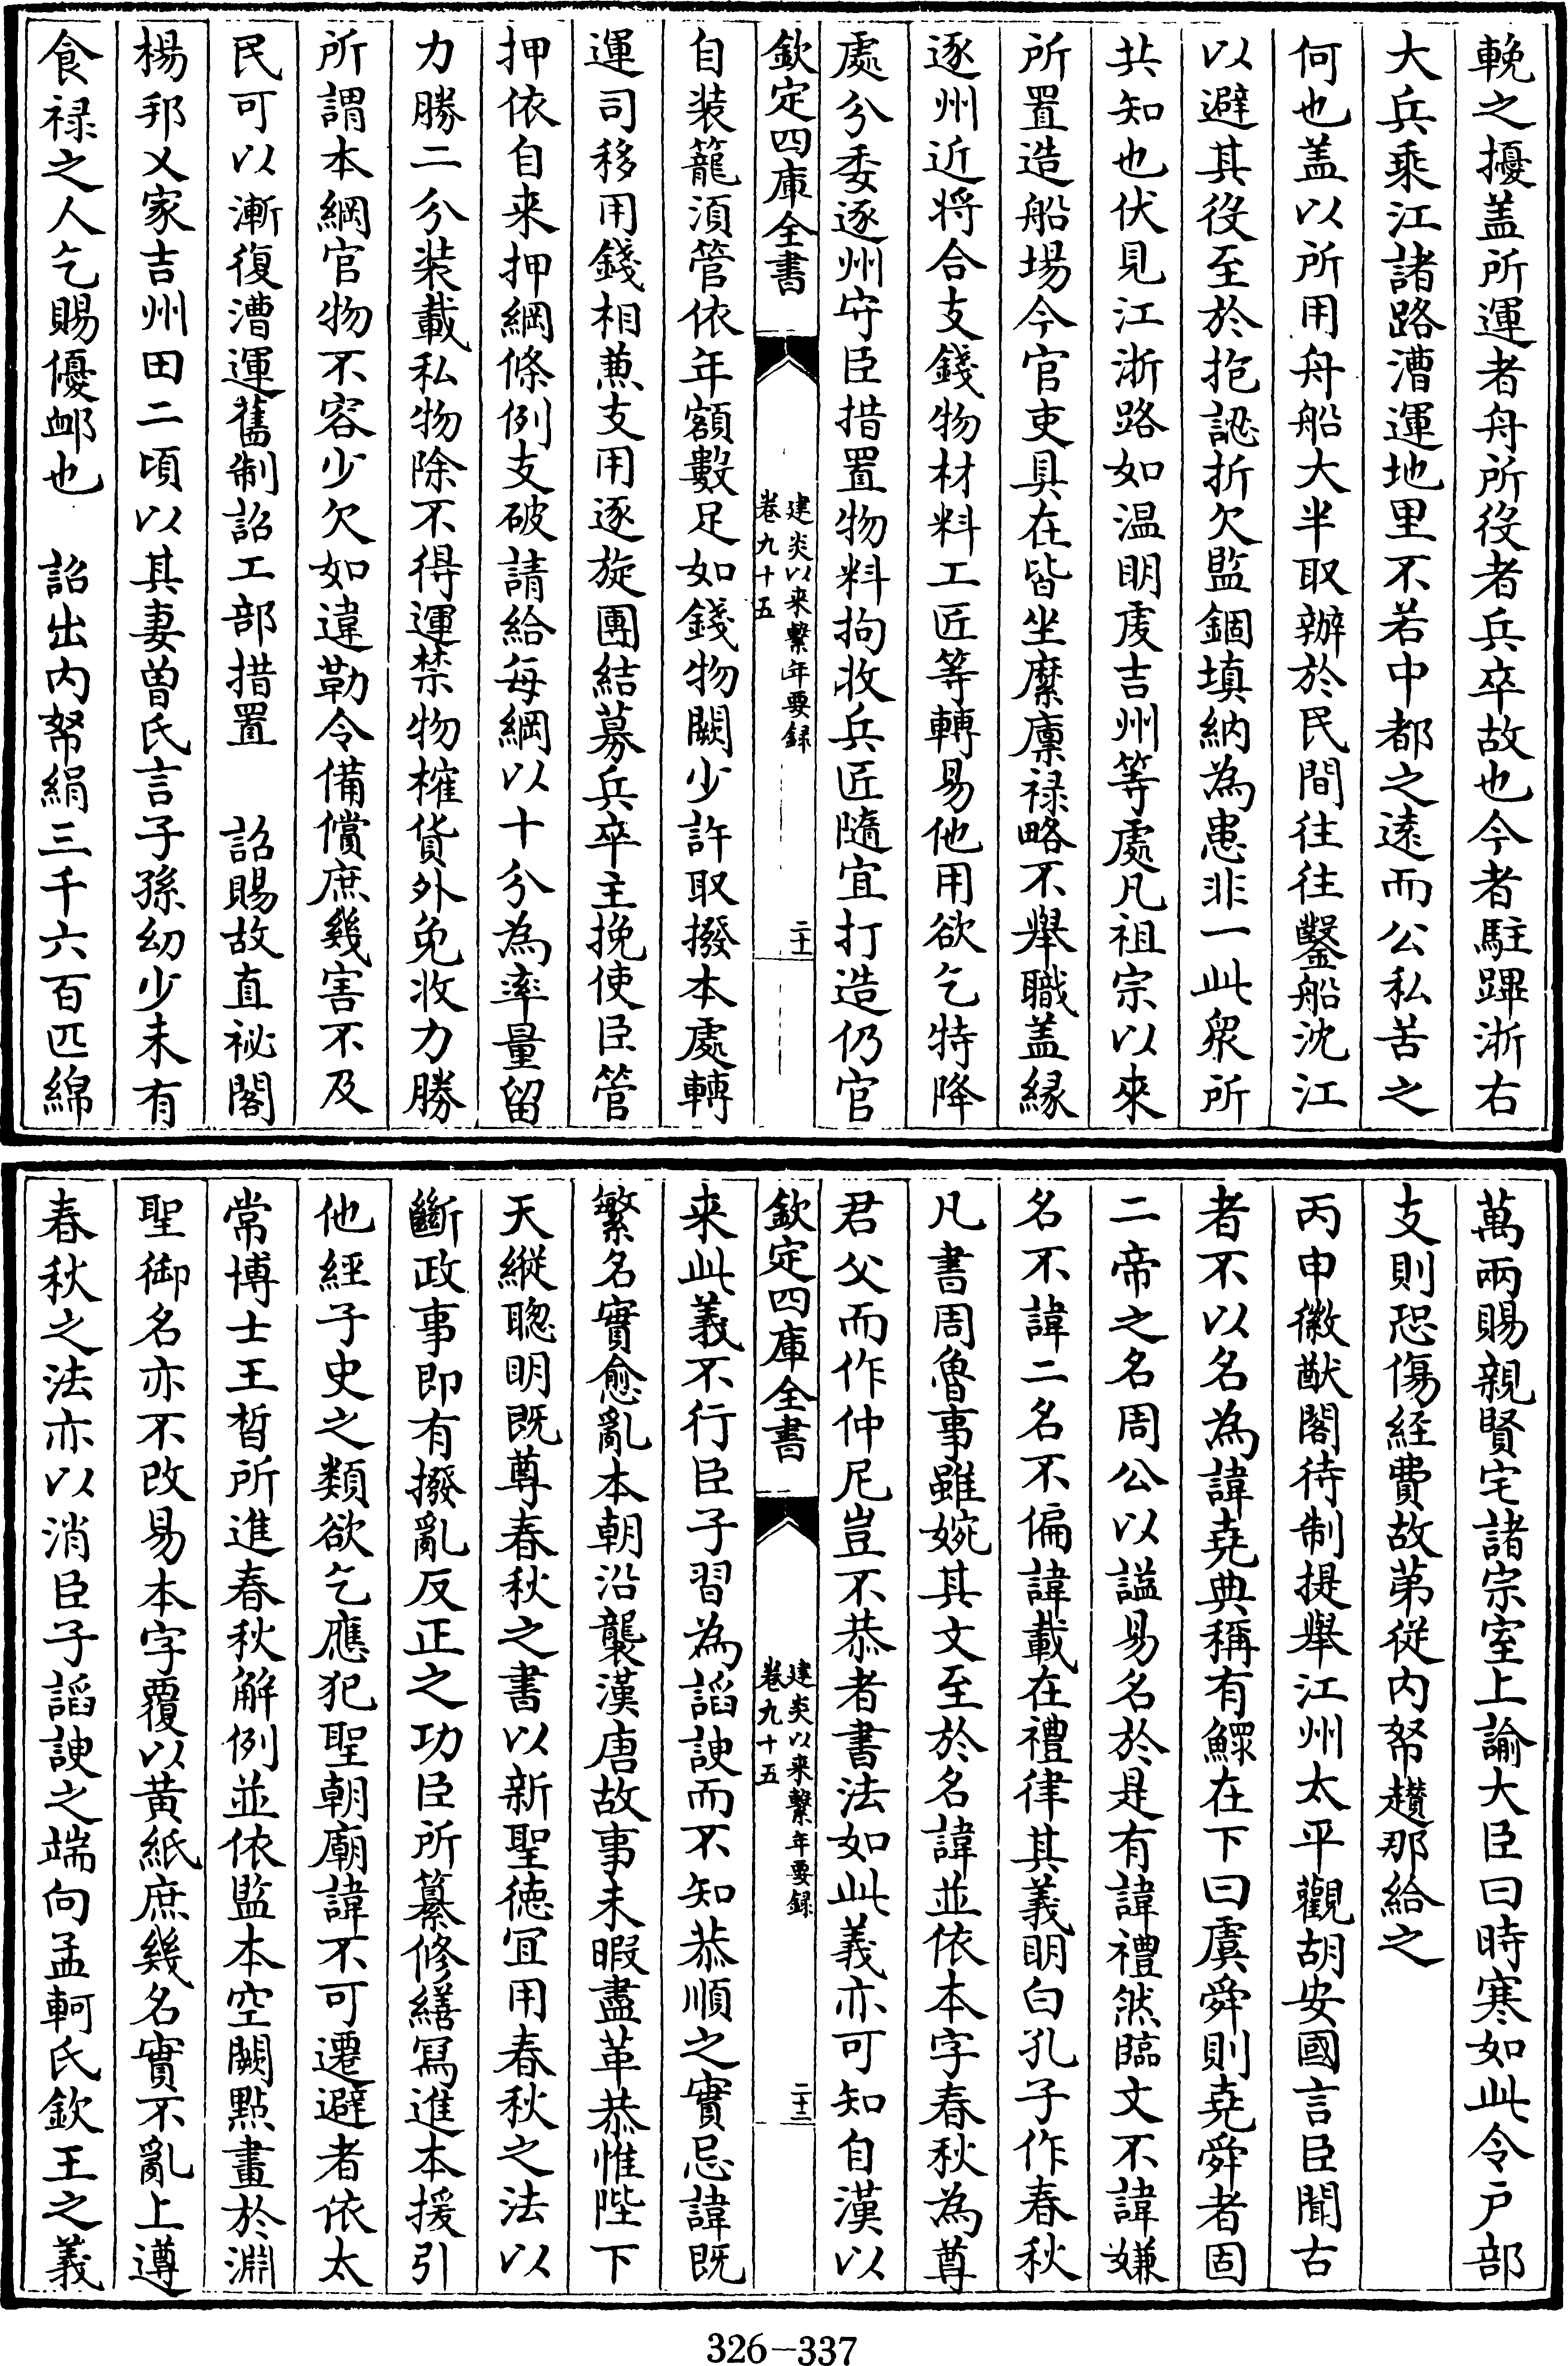 輓之擾盖所運者舟所役者兵卒故也今者駐蹕浙右
大兵乘江諸路漕運地里不若中都之遠而公私苦之
何也盖以所用舟船大半取辦於民間往往鑿船沈江
以避其役至於抱認折欠監錮填納為患非一此衆所
共知也伏見江浙路如温明䖍吉州等處凡祖宗以來
所置造船塲今官吏具在皆坐縻廪禄略不舉職盖縁
逐州近将合支錢物材料工匠等轉易他用欲乞特降
處分委逐州守臣措置物料拘收兵匠隨宜打造仍官
欽定四庫全書
建炎以来繫年要録
卷九十五
二十一
自装籠湏管依年額數足如錢物闕少許取撥本處轉
運司移用錢相兼支用逐旋團結募兵卒主挽使臣管
押依自来押綱條例支破請給每綱以十分為率量留
力勝二分装載私物除不得運禁物榷貨外免收力勝
所謂本綱官物不容少欠如違勒令備償庶幾害不及
民可以漸復漕運舊制詔工部措置　詔賜故直祕閣
楊邦乂家吉州田二頃以其妻曽氏言子孫幼少未有
食禄之人乞賜優䘏也　詔出内帑絹三千六百匹綿
萬兩賜親賢宅諸宗室上諭大臣曰時寒如此令戶部
支則恐傷経費故第従内帑趲那給之
丙申徽猷閣待制提舉江州太平觀胡安國言臣聞古
者不以名為諱堯典稱有鰥在下曰虞舜則堯舜者固
二帝之名周公以謚易名於是有諱禮然臨文不諱嫌
名不諱二名不偏諱載在禮律其義明白孔子作春秋
凡書周魯事雖婉其文至於名諱並依本字春秋為尊
君父而作仲尼豈不恭者書法如此義亦可知自漢以
欽定四庫全書
建炎以来繫年要録
卷九十五
二十二
来此義不行臣子習為謟諛而不知恭順之實忌諱既
繁名實愈亂本朝沿襲漢唐故事未暇盡革恭惟陛下
天縱聰明既尊春秋之書以新聖徳宜用春秋之法以
斷政事即有撥亂反正之功臣所纂修繕冩進本援引
他經子史之類欲乞應犯聖朝廟諱不可遷避者依太
常博士王晳所進春秋解例並依監本空闕點畫於淵
聖御名亦不改易本字覆以黄紙庶幾名實不亂上遵
春秋之法亦以消臣子謟諛之端向孟軻氏欽王之義
326-337